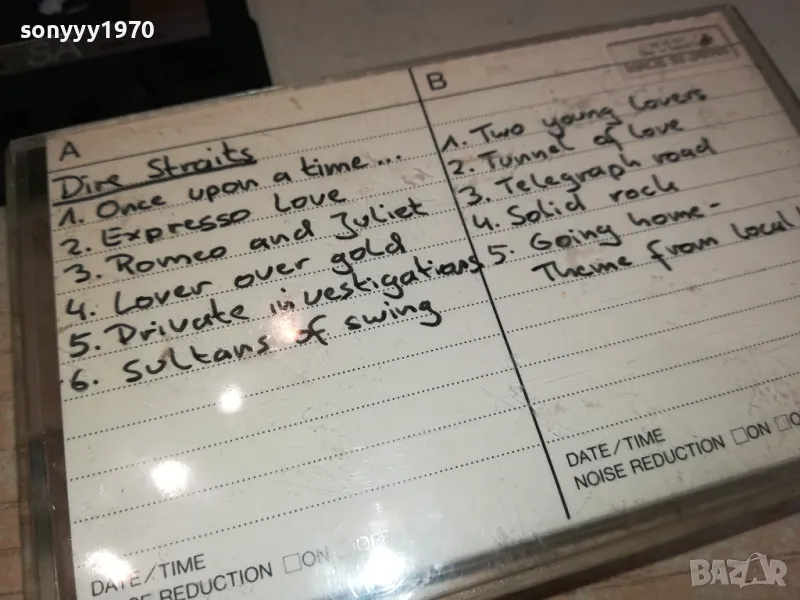 sonyyy1970
SA
A
Dire Straits
1. Once upon a time...
2. Expresso Love
3. Romeo and Juliet
4. Lover over gold
5. Private investigations
6. Sultans of swing
DATE/TIME
NOISE REDUCTION □ON □OFF
B
1. Two young Lovers
2. Tunnel of Love
3. Telegraph road
4. Solid rock
5. Going home -
Theme from Local
DATE/TIME
NOISE REDUCTION □ON □O
BAZAR